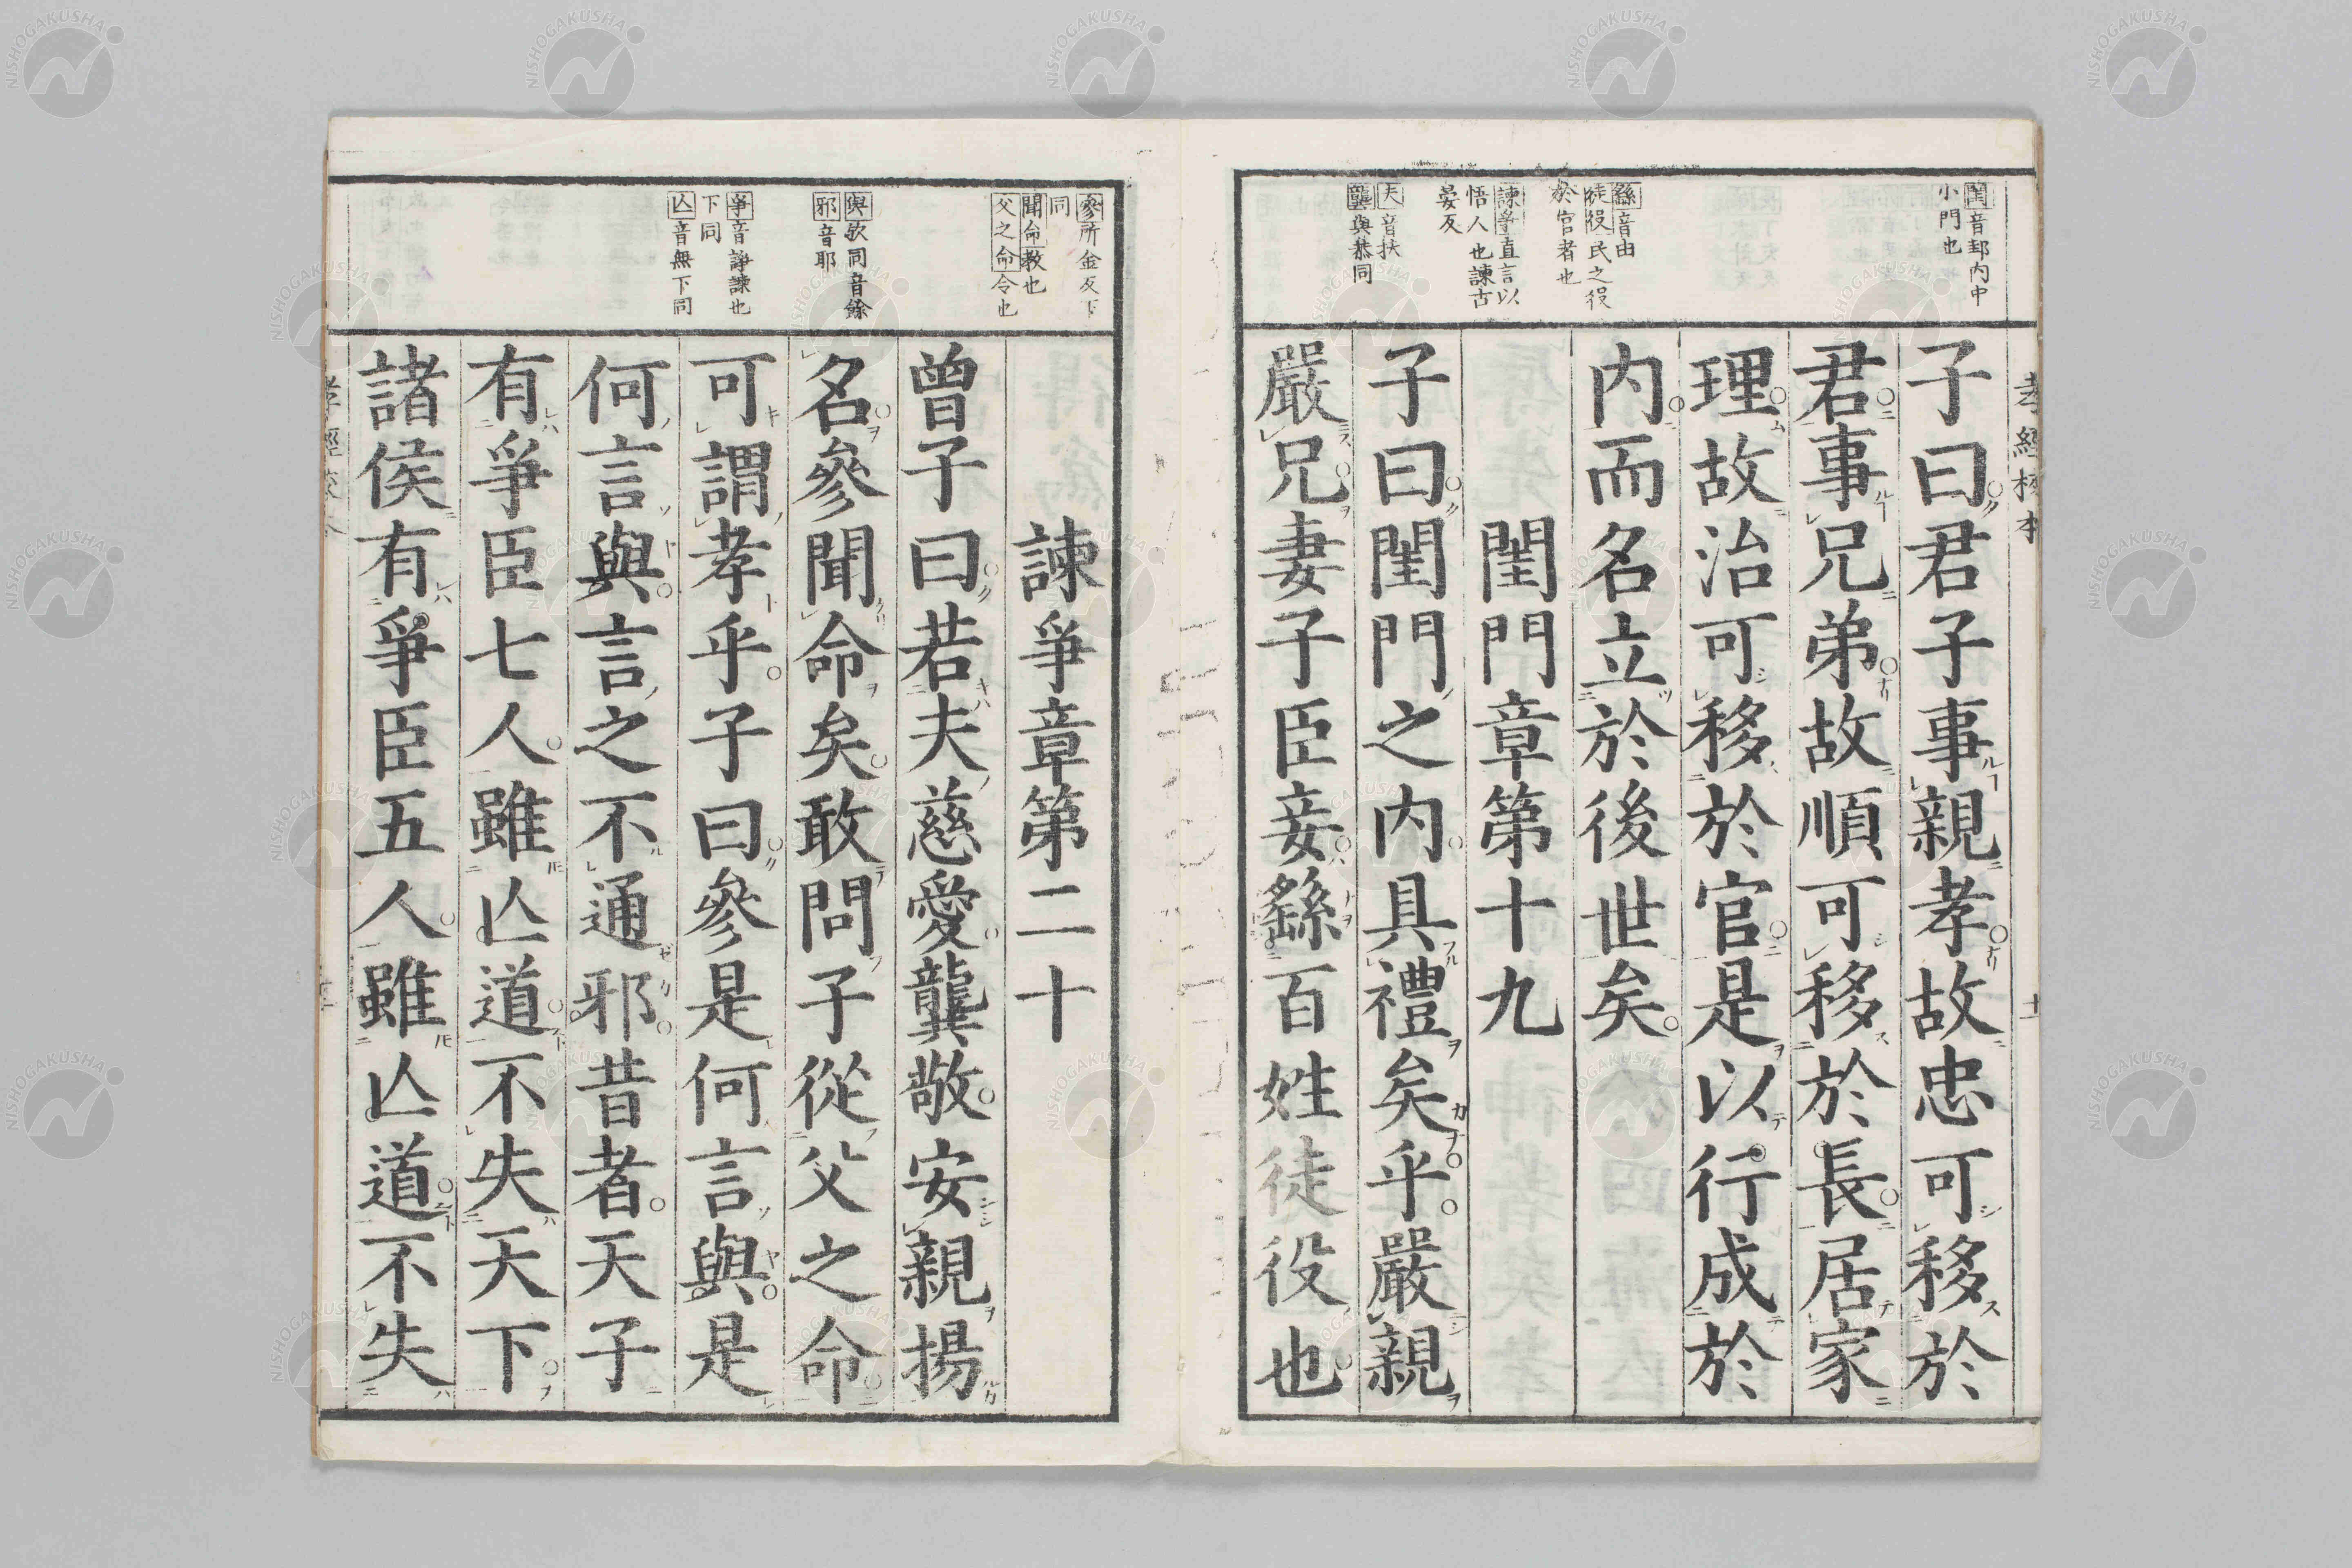 孝經校本
閨音邽内中
小門也
繇音由
徒役民之役
於官者也
諫爭直言以
悟人也諫古
晏反
夫音扶
龔與恭同
子曰君子事親孝故忠可移於
君事兄弟故順可移於長居家
理故治可移於官是以行成於
内而名立於後世矣
閨門章第十九
子曰閨門之内具禮矣乎嚴親
嚴兄妻子臣妾繇百姓徒役也
參所金反下
同
聞命教也
父之命令也
與歟同音餘
邪音耶
爭音諍諫也
下同
亾音無下同
諫爭章第二十
曾子曰若夫慈愛龔敬安親揚
名參聞命矣敢問子從父之命
可謂孝乎子曰參是何言與是
何言與言之不通邪昔者天子
有爭臣七人雖亾道不失天下
諸侯有爭臣五人雖亾道不失
NISHOGAKUSHA